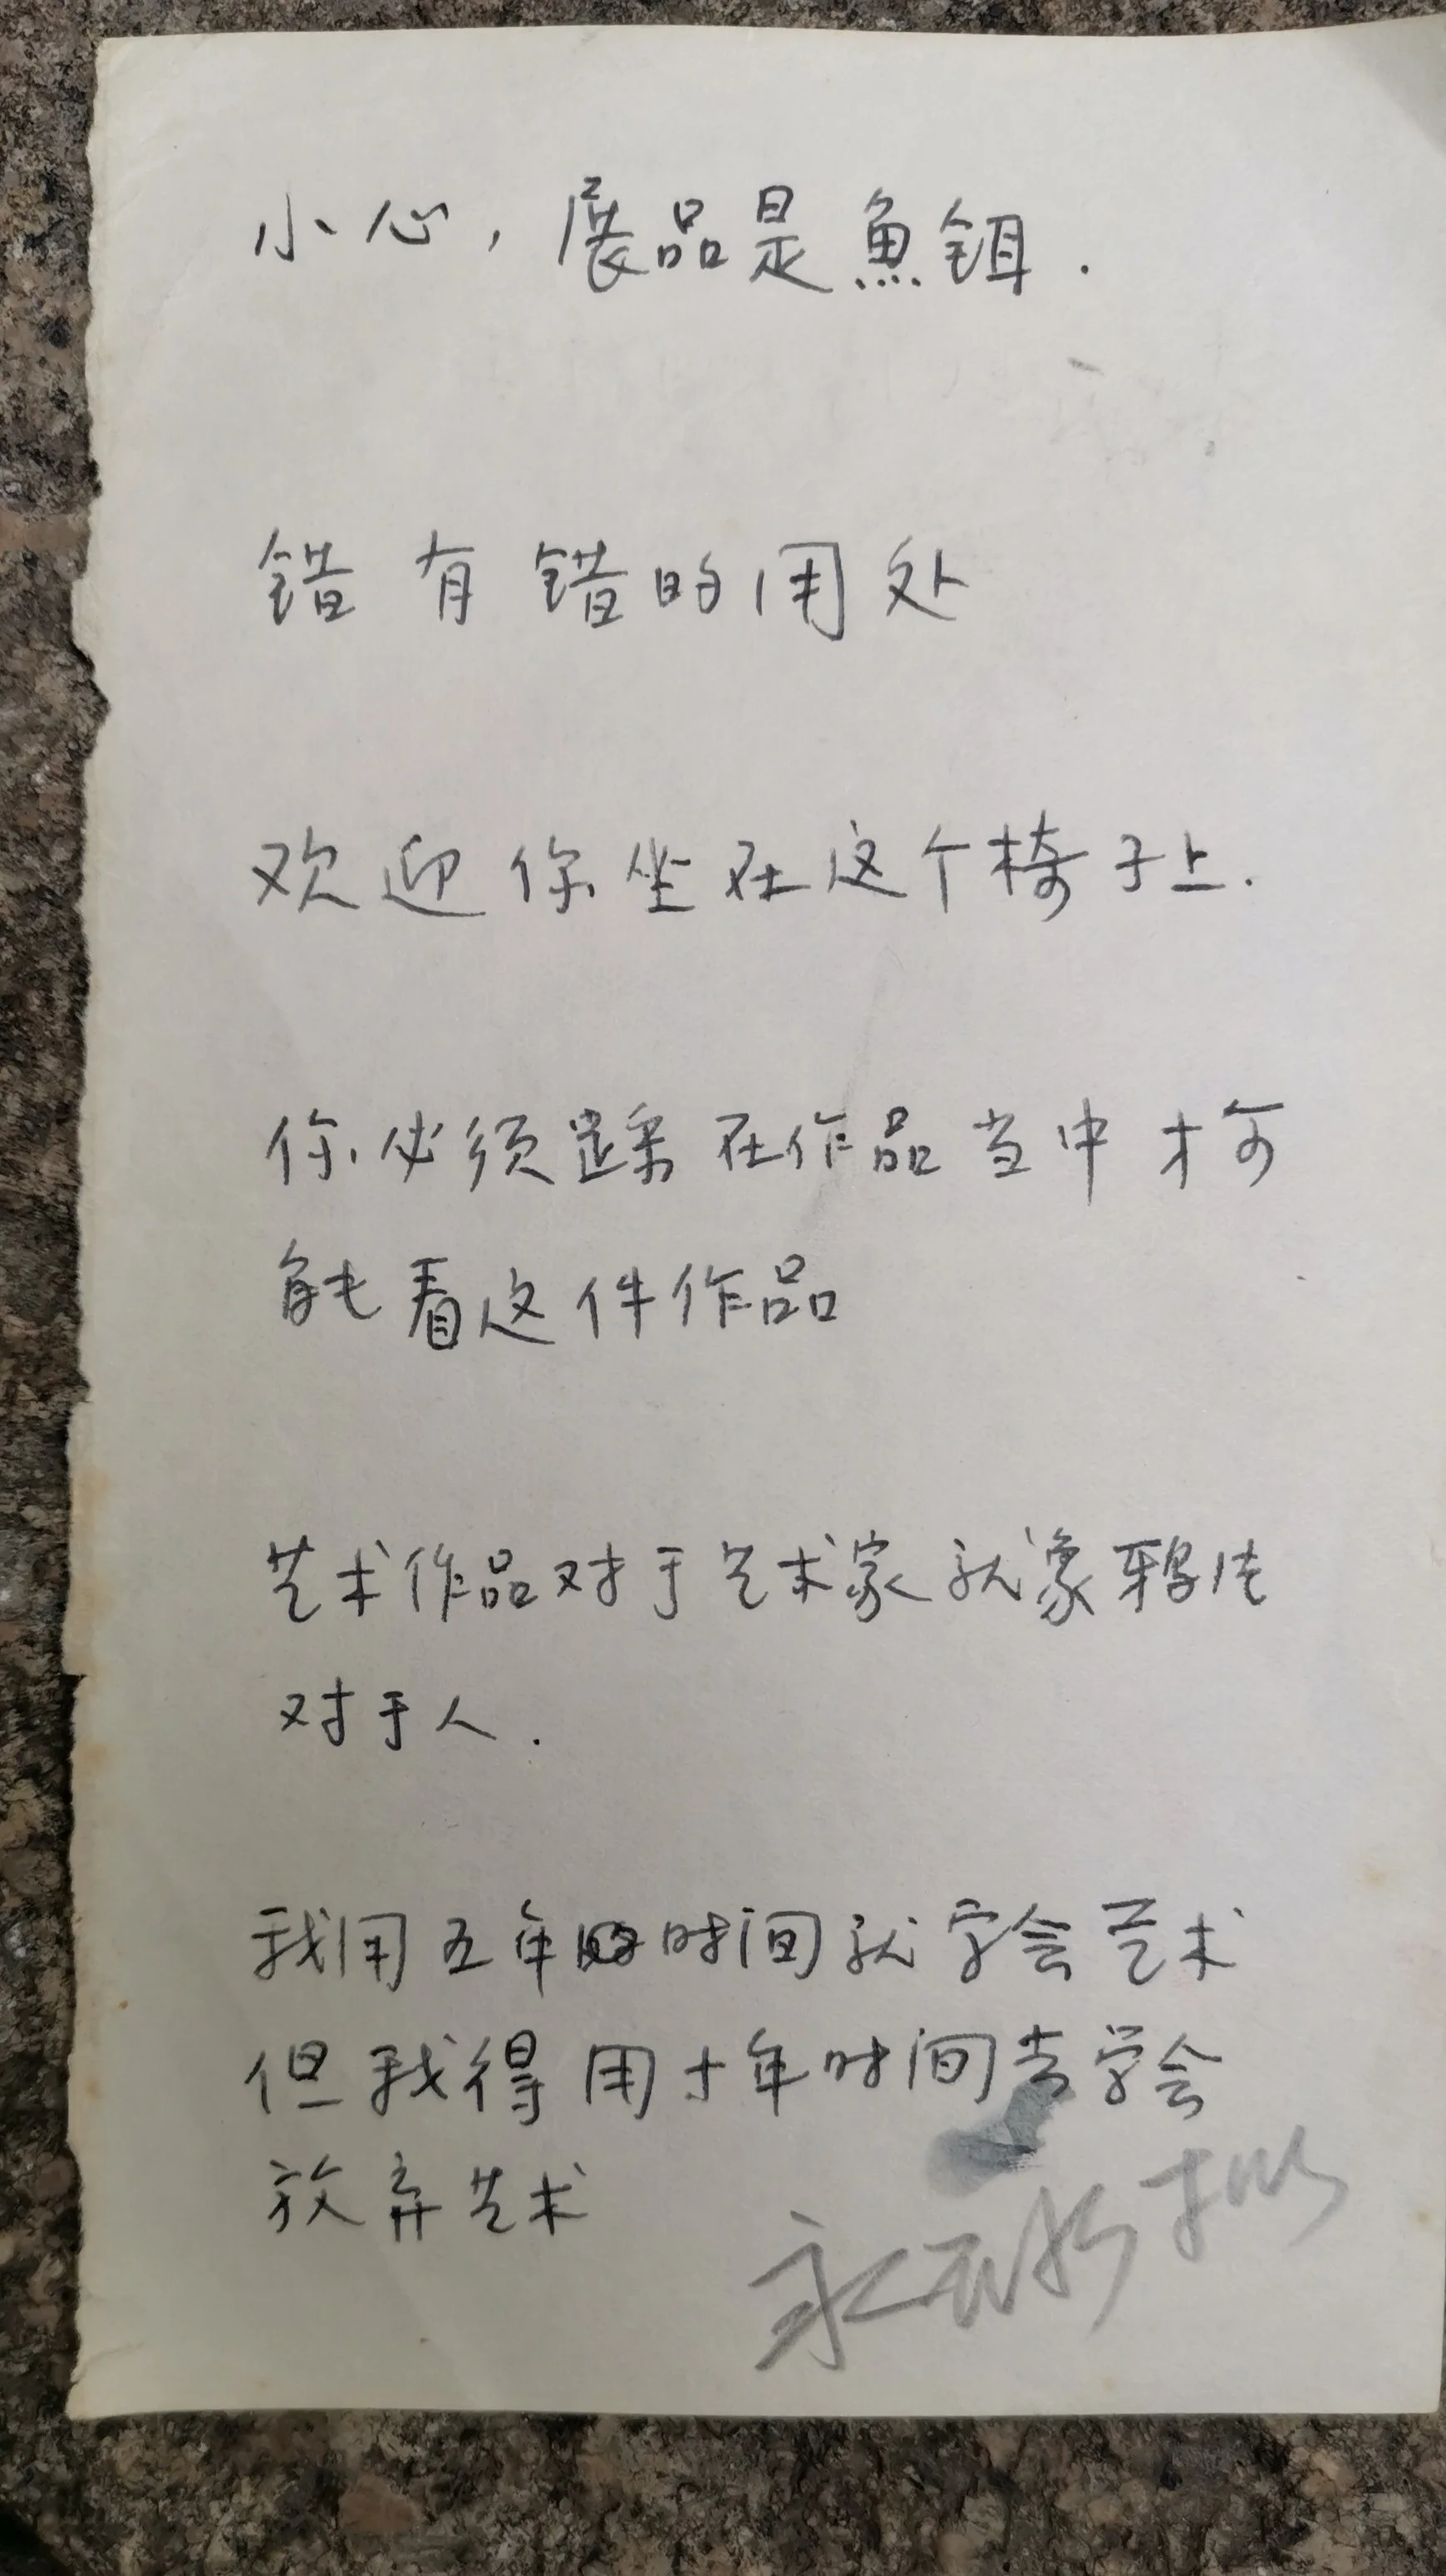 小心，展品是魚铒.
错有错的用处
欢迎你坐在这个椅子上.
你必须踩在作品当中才可
能看这件作品
艺术作品对于艺术家就象鸦片
对于人.
我用五年的时间就学会艺术
但我得用十年时间去学会
放弃艺术